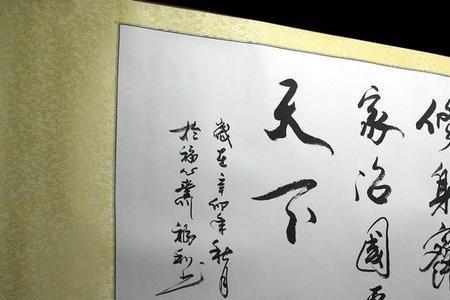 修身齊
家治國平
天下
歲在辛卯年秋月
於福心齋